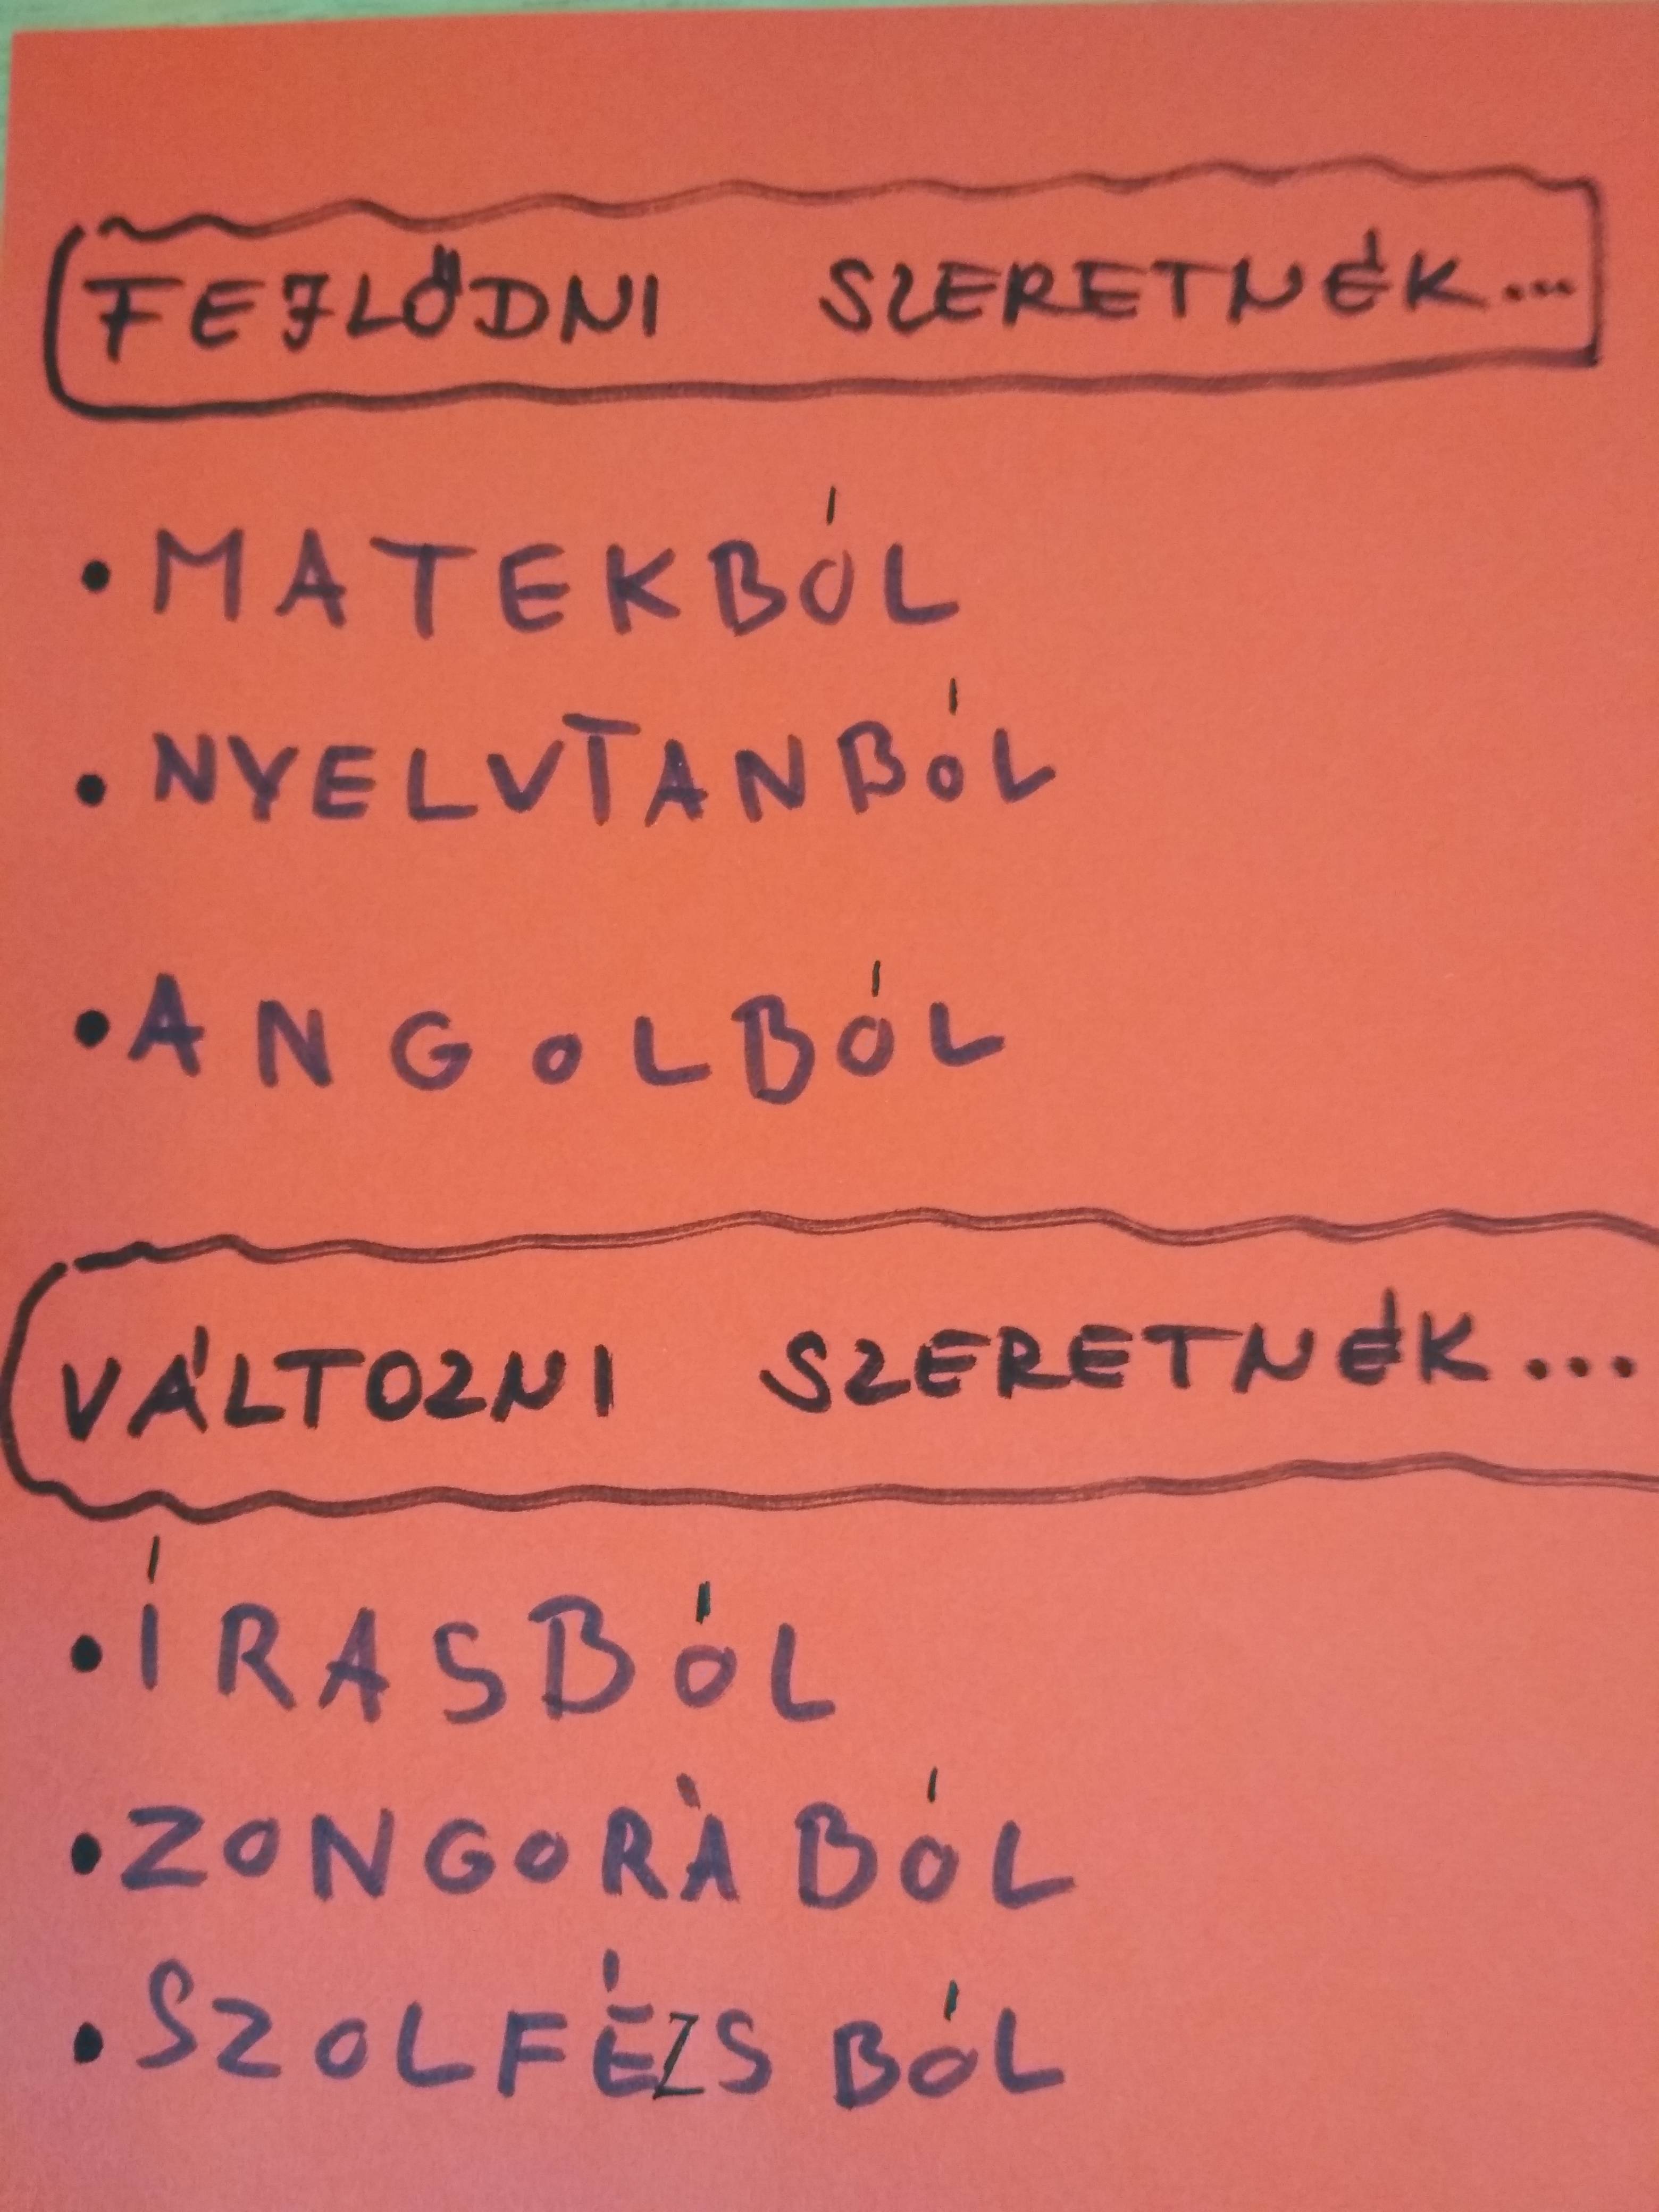 FEJLŐDNI SZERETNÉK...
• MATEKBÓL
• NYELVTANBÓL
• ANGOLBÓL
VÁLTOZNI SZERETNÉK...
• ÍRASBÓL
• ZONGORÀBÓL
• SZOLFÉZSBÓL